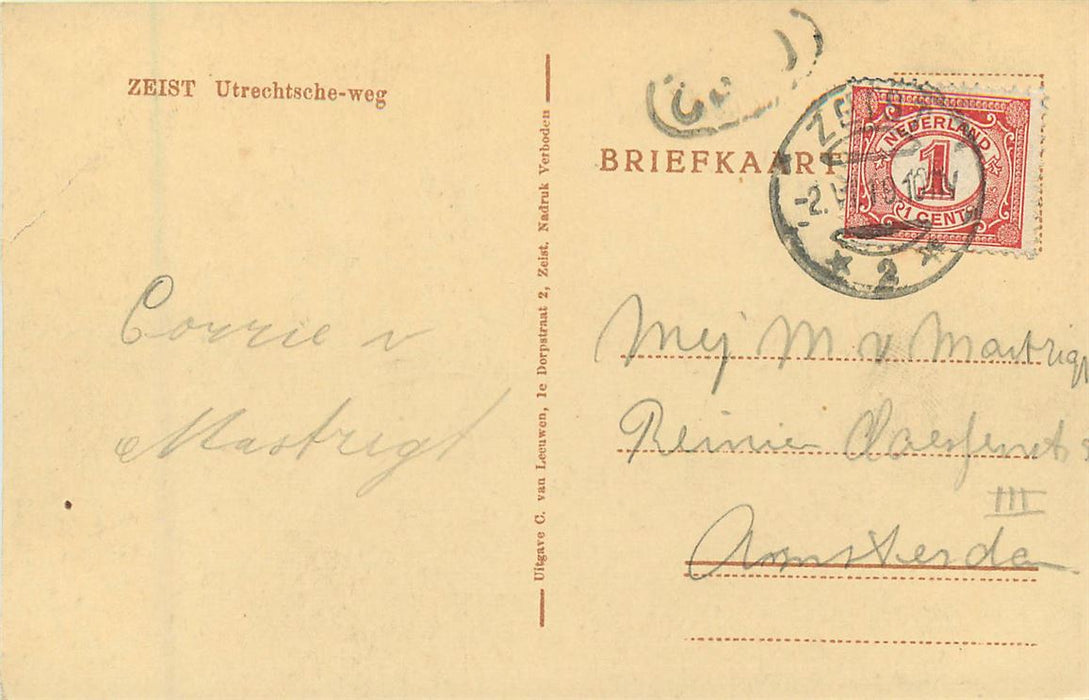 ZEIST Utrechtsche-weg
Corrie v
Mastrigt
Uitgave C. van Leeuwen, 1e Dorpstraat 2, Zeist. Nadruk Verboden
BRIEFKAART
ZEIST
2
NEDERLAND
1
1 CENT
Mej M v Mastrigt
Reinier
III
Amsterdam